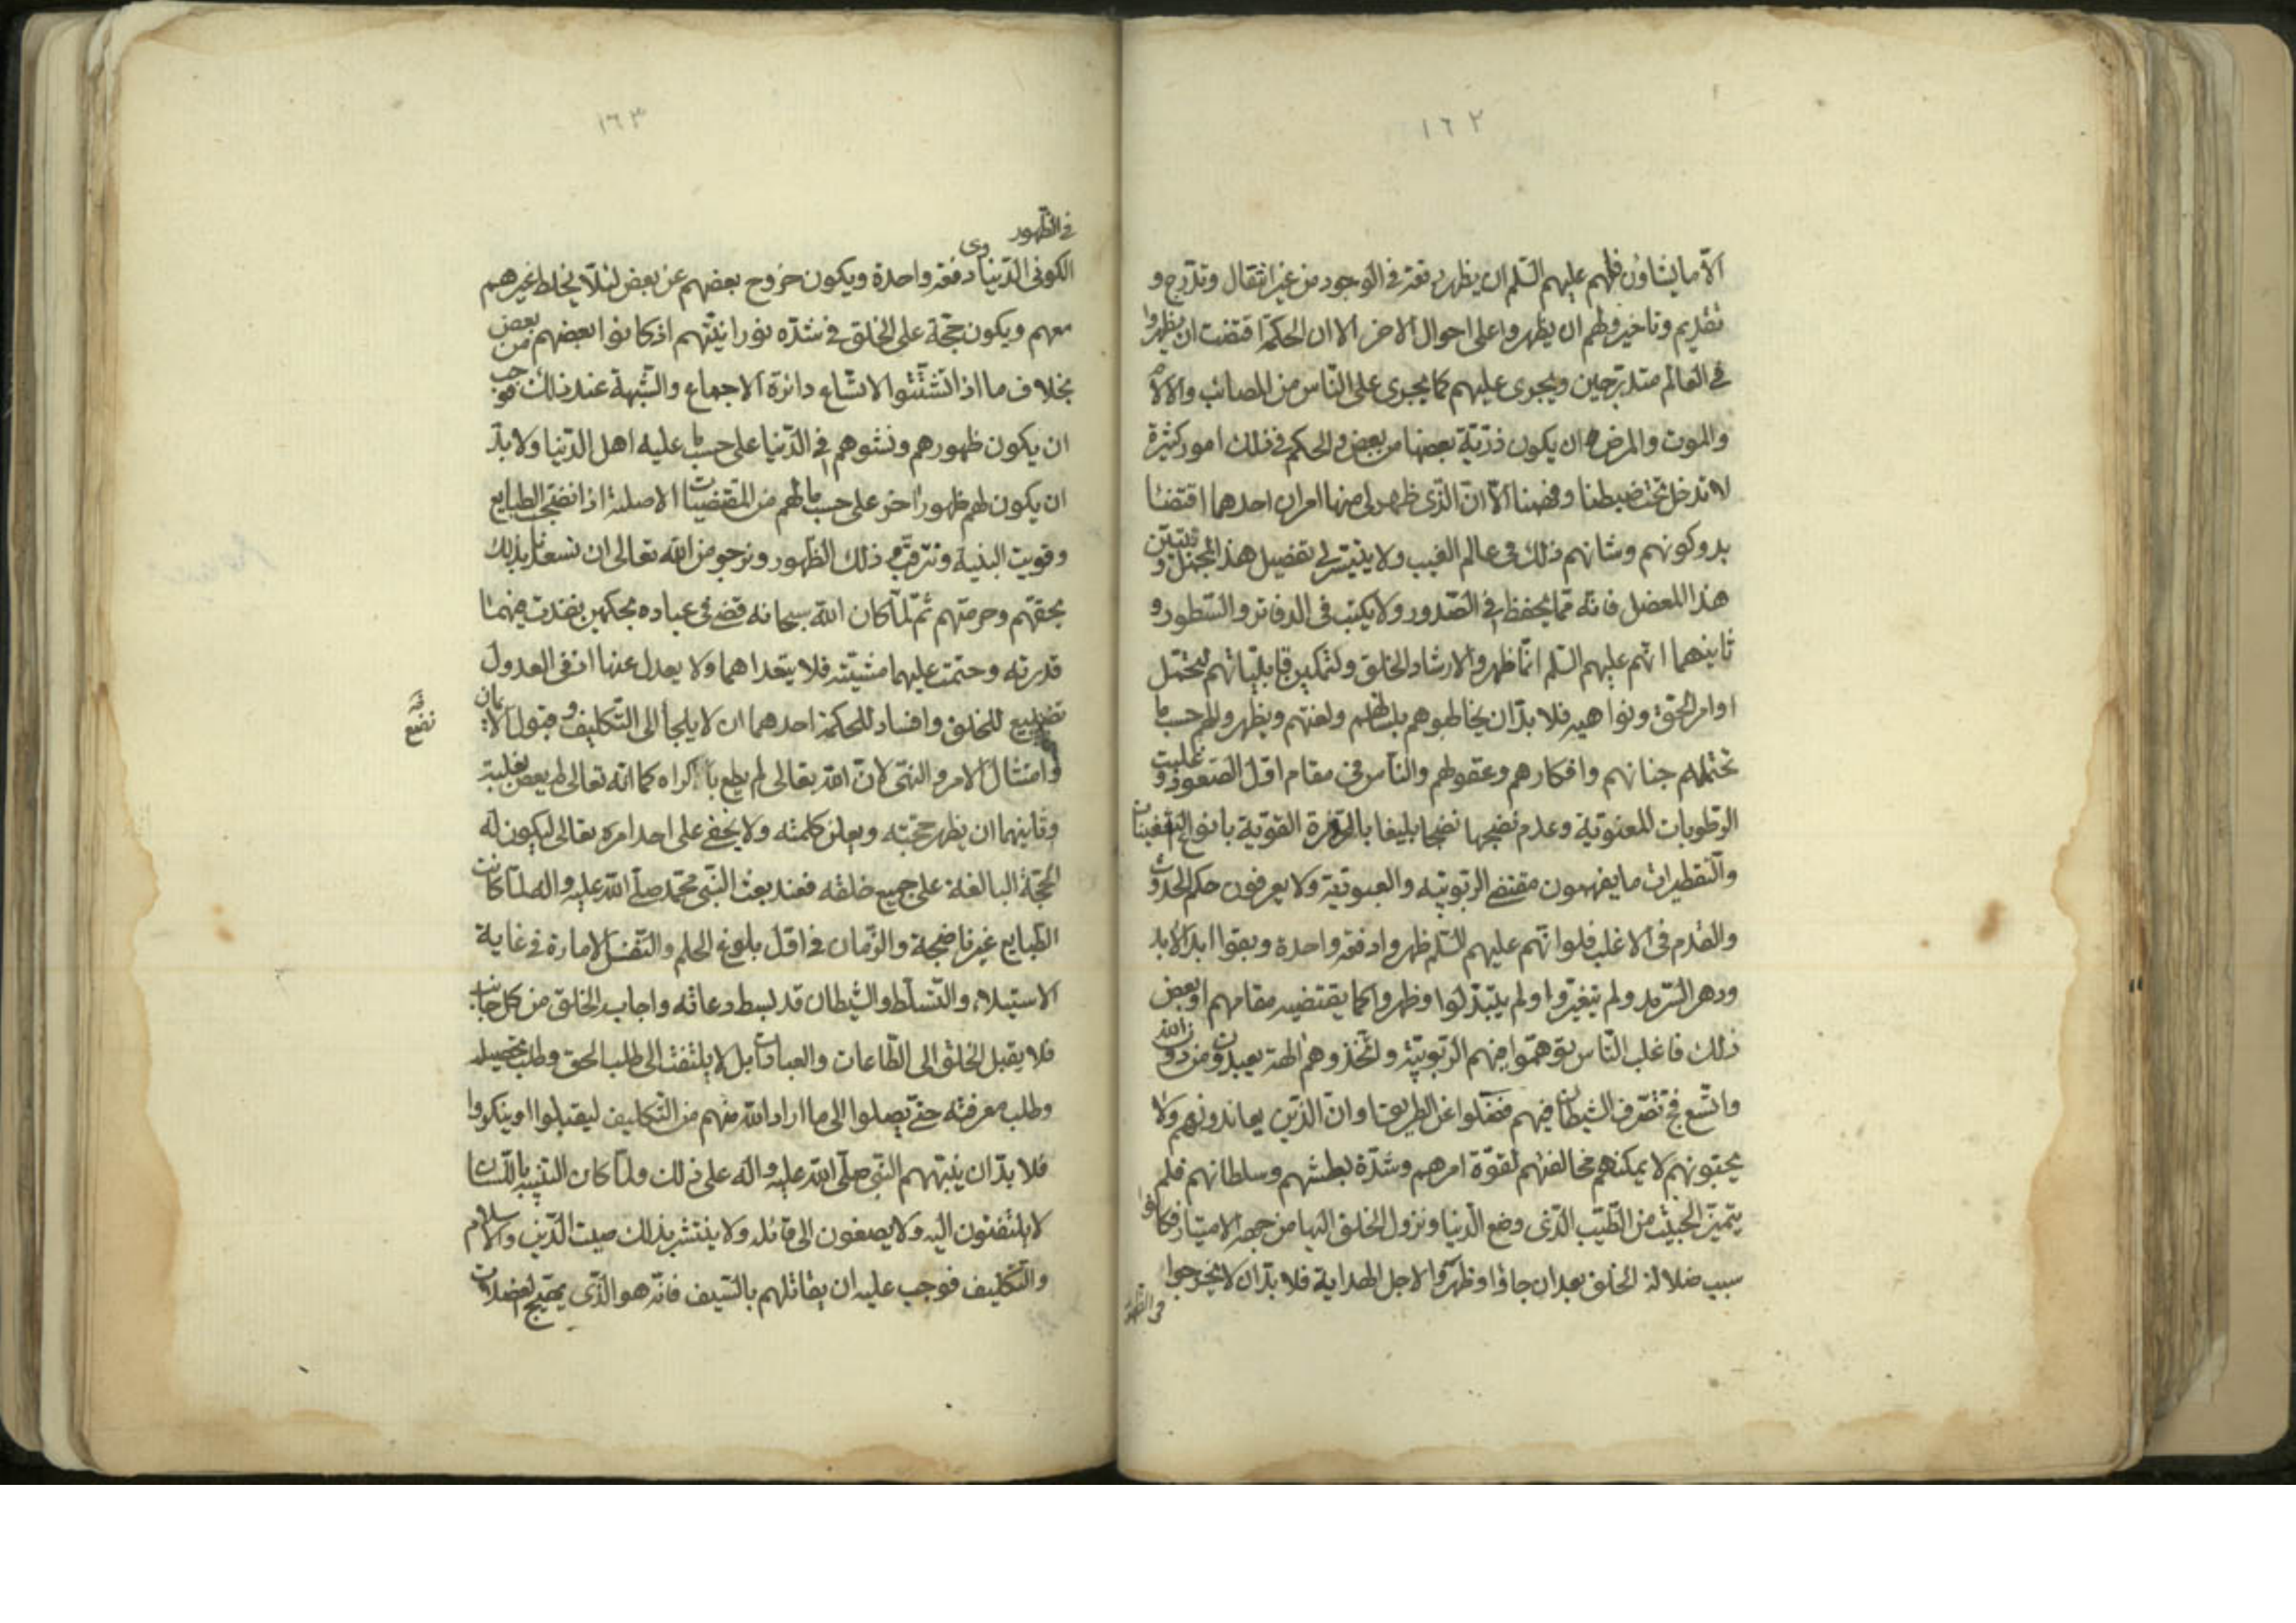 ١٦٢
الّا ما يشاؤن فلهم عليهم السّلم ان يظهروا دفعة فى الوجود من غير انتقال وتدرّج و
تقديم وتاخير ولهم ان يظهروا على احوال الاخر الا ان الحكمة اقتضت ان يظهروا
فى العالم متدرّجين ويجرى عليهم كما يجرى على النّاس من المصائب والالام
والموت والمرض وان يكون ذرّيّة بعضها من بعض والحكم فى ذلك امور كثيرة
لا تدخل تحت ضبطنا وفهمنا الّا انّ الذى ظهر لى منها امران احدهما اقتضاء
بدو كونهم وشانهم ذلك فى عالم الغيب ولا يتيسّر لى تفصيل هذا المجمل وتبيين
هذا المعضل فانّه ممّا يحفظ فى الصّدور ولا يكتب فى الدفاتر والسّطور و
ثانيهما انّهم عليهم السّلم انّما ظهروا لارشاد الخلق ولتمكين قابليّاتهم لتحتمل
اوامر الحقّ ونواهيه فلا بدّ ان يخاطبوهم بلسانهم ولغتهم ويظهروا لهم حسب ما
تحتمله جنانهم وافكارهم وعقولهم والنّاس فى مقام اوّل الصّعود وغلبت
الرّطوبات المعنويّة وعدم نضجها نضجا بليغا بالحرارة القويّة بانواع التعفينات
والتقطيرات ما يفهمون مقتضى الربوبيّة والعبوديّة ولا يعرفون حكم الحدوث
والقدم فى الاغلب فلو انّهم عليهم السّلم ظهروا دفعة واحدة وبقوا ابد الابد
ودهر السّرمد ولم يتغيّروا ولم يتبدّلوا وظهروا كما يقتضيه مقامهم او بعض
ذلك فاغلب النّاس توهّموا فيهم الربوبيّة ولتّخذوهم الهة يعبدون من دون الله
واتّسع فج تصّرف الشيطان فيهم فضلّوا عن الطريق وانّ الذّين يعاندونهم ولا
يحبّونهم لا يمكنهم مخالفتهم لقوّة امرهم وشدّة بطشهم وسلطانهم فلم
يتميّز الخبيث من الطّيّب الذى وضع الدّنيا ونزول الخلق اليها من جهة الامتياز فكانوا
سبب ضلالة الخلق بعد ان جاؤا وظهروا لاجل الهداية فلا بدّ ان لا يخرجوا
فى الظهور
١٦٣
فى الظّهور
الكونى الدّنياوى دفعة واحدة ويكون خروج بعضهم عن بعض لئلّا يخلط غيرهم
معهم ويكون حجّة على الخلق فى شدّه نورانيّتهم اذ كانوا بعضهم من بعض
بخلاف ما اذا تشتّتوا لاتّساع دائرة الاجماع والشّبهة عند ذلك فوجب
ان يكون ظهورهم ونشوهم فى الدّنيا على حسب ما عليه اهل الدّنيا ولا بدّ
ان يكون لهم ظهورا اخر على حسب ما لهم من المقتضيات الاصليّة اذا نضجت الطبايع
وقويت البنية ونترقّب ذلك الظّهور ونرجو من الله تعالى ان نسعد بذلك
بحقّهم وحرمتهم ثمّ لمّا كان الله سبحانه قضى فى عباده بحكمين نفذت فيهما
قدرته وحتمت عليهما مشيّته فلا يتعداهما ولا يعدل عنها اذ فى العدول
تضييع للخلق وافساد للحكمة احدهما ان لا يلجأ الى التّكليف وقبول الايمان
وامتثال الامر والنهى لانّ الله تعالى لم يطع باكراه كما انّه تعالى لم يعص بغلبة
وثانيهما ان يظهر حجّته ويعلن كلمته ولا يخفى على احد امره تعالى ليكون له
الحجّة البالغة على جميع خلقه فعند بعث النّبى محمّد صلّى الله عليه واله لمّا كانت
الطّبايع غير ناضجة والزّمان فى اوّل بلوغ الحلم والنّفس الامارة فى غاية
الاستيلاء والتّسلّط والشّيطان قد بسط دعاته واجاب الخلق من كل جانب
فلا يقبل الخلق الى الطّاعات والعبادات بل لا يلتفت الى طلب الحق وطلب تحصيله
وطلب معرفته حتّى يصلوا الى ما اراد الله منهم من التّكاليف ليقبلوا او ينكروا
فلا بدّ ان ينبّههم النّبى صلّى الله عليه واله على ذلك ولمّا كان التنبيه باللّسان
لا يلتفتون اليه ولا يصغون الى قائله ولا ينتشر بذلك صيت الدّين والاسلام
والتّكليف فوجب عليه ان يقاتلهم بالسّيف فانّه هو الذّى يهيّج الفضلات